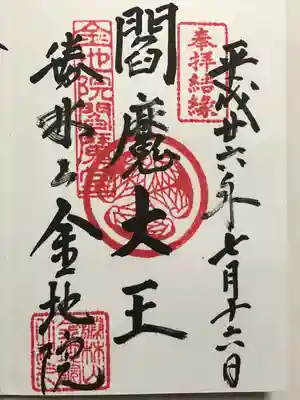 平成廿六年七月十六日
奉拝結縁
閻魔大王
金地院閻魔堂
勝林山金地院